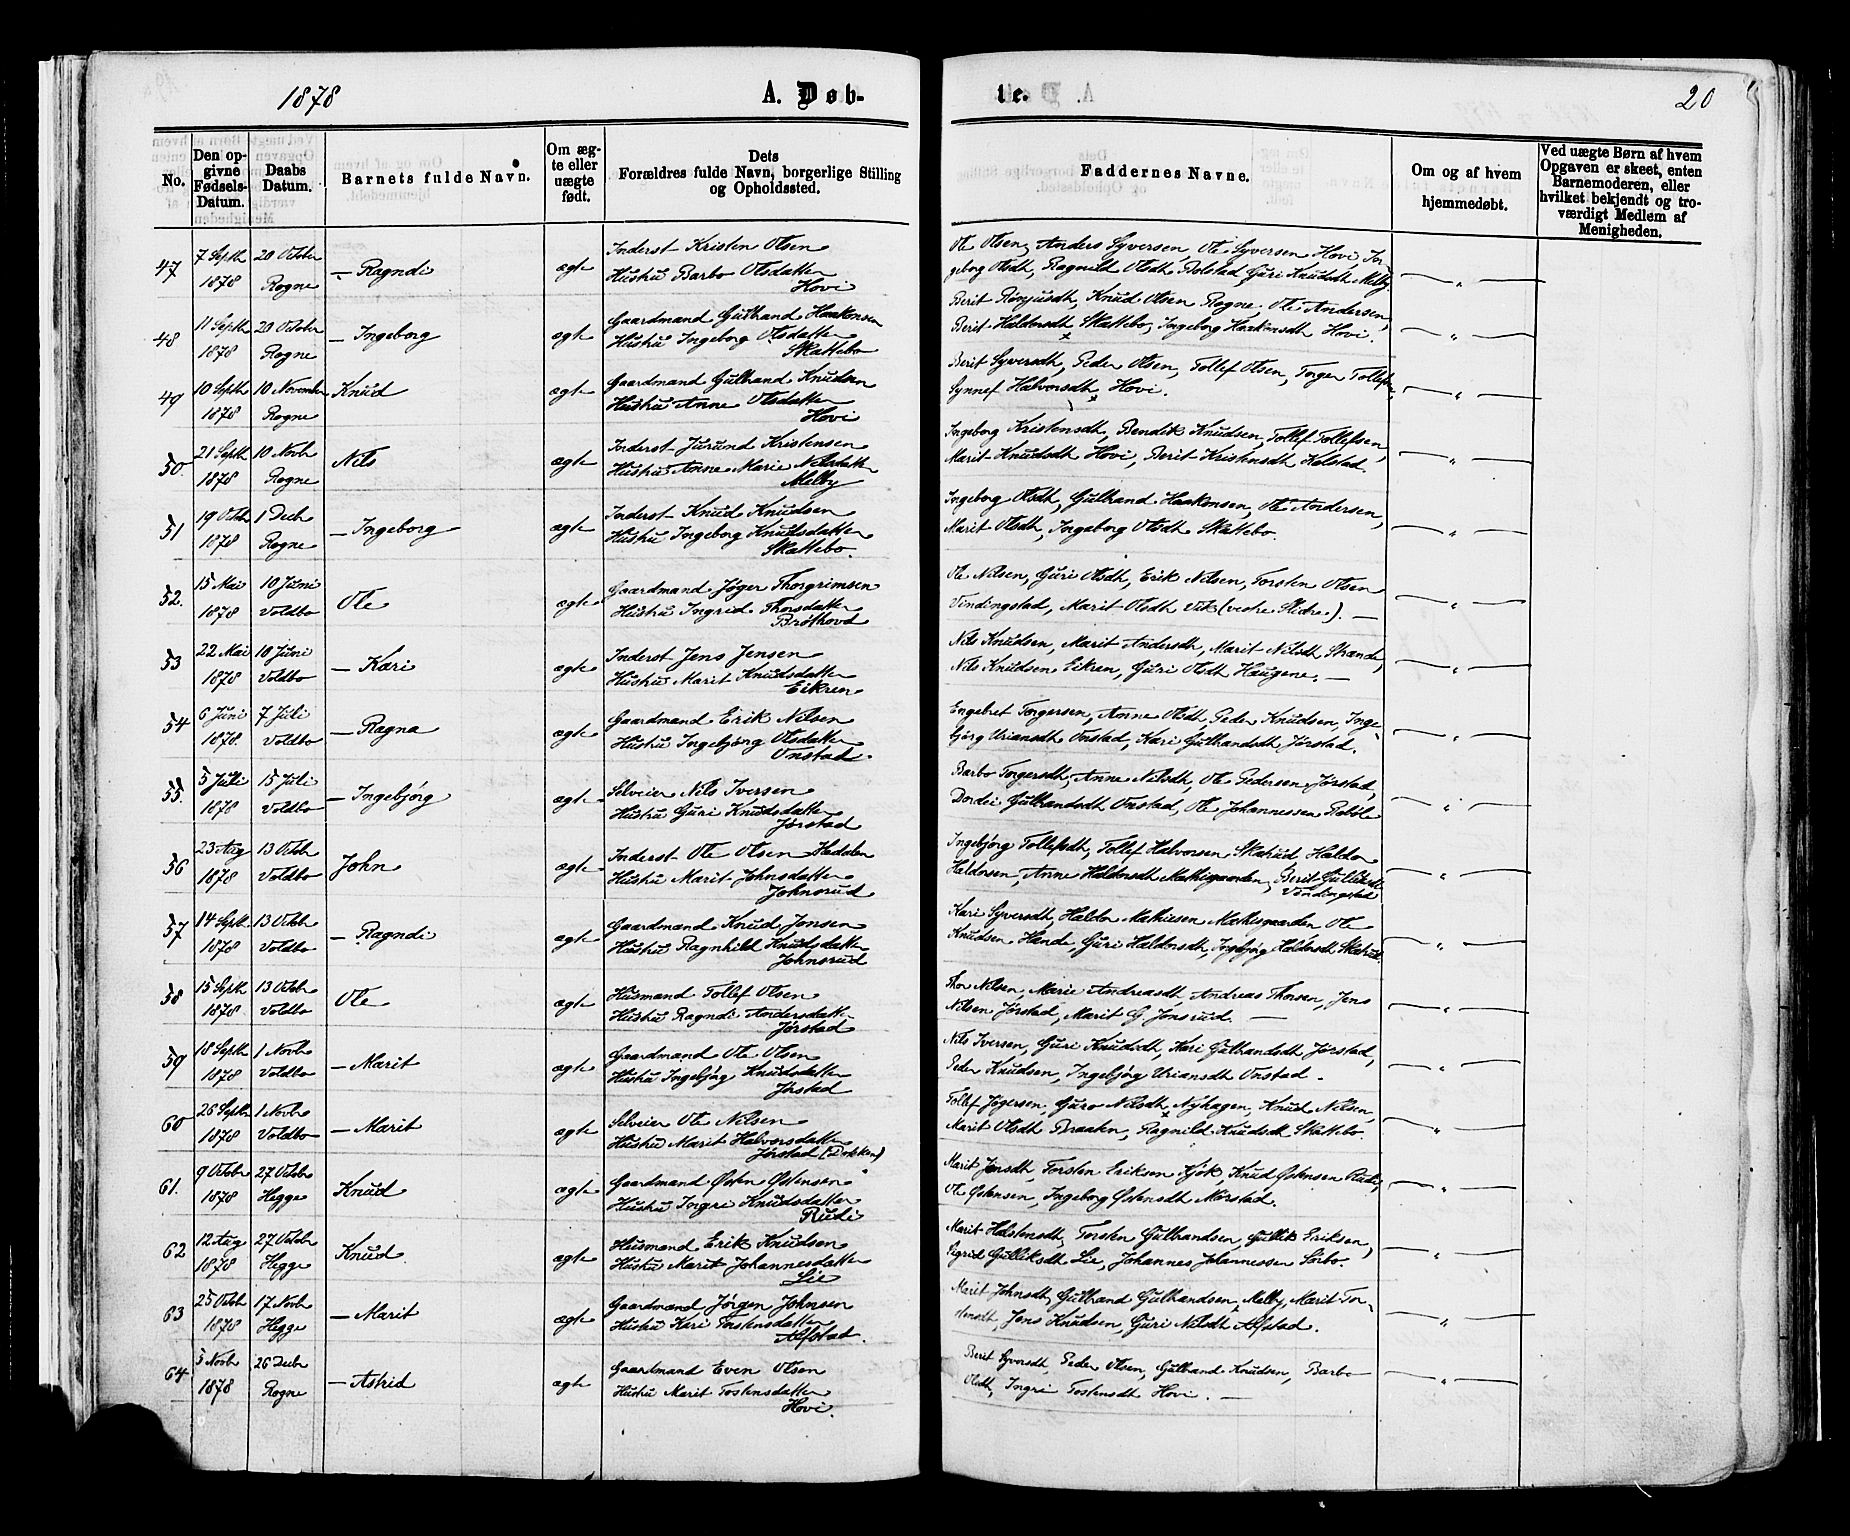 1878
A. Døb-
te.
20
No.
Den op-
givne
Fødsels-
Datum.
Daabs
Datum.
Barnets fulde Navn.
Om æg-
te eller
uægte
født.
Dets
Forældres fulde Navn, borgerlige Stilling
og Opholdssted.
Faddernes Navne.
Om og af hvem
hjemmedøbt.
Ved uægte Børn af hvem
Opgaven er skeet, enten
Barnemoderen, eller
hvilket bekjendt og tro-
værdigt Medlem af
Menigheden.
47 7 Septh 20 Octobr — Ragndi ægte Inderst Kristen Olsen
1878 Rogne Hustru Barbo Olsdatter
Hovi
Ole Olsen, Anders Syversen, Ole Syversen Hovi, In-
geborg Olsdt, Ragnild Olsdt Bolstad, Guri Knudsdt Melby. — „ —
48 11 Septh 20 Octobr — Ingeborg ægte Gaardmand Gulbrand Haakensen
1878 Rogne Hustru Ingeborg Olsdatter
Skattebo
Berit Rønjusdt, Knud Olsen Rogne, Ole Andersen,
Berit Haldorsdt Skattebo, Ingeborg Haakensdt Hovi. — „ —
49 10 Septh 10 November Knud ægte Gaardmand Gulbrand Knudsen
1878 Rogne Hustru Anne Olsdatter
Hovi
Berit Syversdt, Peder Olsen, Tollef Olsen, Torger Tollefsen,
Synnef Halvorsdt, Hovi. — „ —
50 21 Septh 10 Novbr Nils ægte Inderst Jurund Kristensen
1878 Rogne Hustru Anne Marie Nilsdatter
Melby
Ingeborg Kristensdt, Bendik Knudsen, Tollef Tollefsen,
Marit Knudsdt Hovi, Berit Kristensdt Kolstad. — „ —
51 19 Octbr 1 Decbr — Ingeborg ægte Inderst Knud Knudsen
1878 Rogne Hustru Ingeborg Knudsdatter
Skattebo.
Ingeborg Olsdt, Gulbrand Haakensen, Ole Andersen,
Marit Olsdt, Ingeborg Olsdt Skattebo. — „ —
52. 15 Mai 10 Juni Ole ægte Gaardmand Jøger Thorgrimsen
1878 Voldbo Hustru Ingrid Thorsdatter
Brøthovd
Ole Nilsen, Guri Olsdt, Erik Nilsen, Torsten Olsen
Vindingstad, Marit Olsdt Vik (vestre Slidre). — — „ —
53 22 Mai 10 Juni — Kari ægte Inderst Jens Jensen
1878 Voldbo Hustru Marit Knudsdatter
Eikren
Nils Knudsen, Marit Andersdt, Marit Nilsdt Strande,
Nils Knudsen Eikren, Guri Olsdt Haugene. — — „ —
54 6 Juni 7 Juli — Ragna ægte Gaardmand Erik Nilsen
1878. Voldbo Hustru Ingebjørg Olsdatter
Onstad.
Engebret Torgersen, Anne Olsdt, Peder Knudsen, Inge-
bjørg Uriansdt Onstad, Kari Gulbrandsdt Jørstad. — „ —
55. 5 Juli 15 Juli — Ingebjørg ægte Selveier Nils Iversen
1878 Voldbo Hustru Guri Knudsdatter
Jørstad
Barbo Torgersdt, Anne Nilsdt, Ole Pedersen Jørstad,
Dordei Gulbrandsdt Onstad, Ole Johannessen Rabøl — „ —
56 23 Aug 13 Octbr John ægte Inderst Ole Olsen Hedalen
1878 Voldbo Hustru Marit Johnsdatter
Johnsrud
Ingebjørg Tollefsdt, Tollef Halvorsen Skatrud, Haldor
Haldorsen, Anne Haldorsdt Mathisgaarden, Berit Gulliksdt
Vindingstad — „ —
57 14 Septh 13 Octbr — Ragndi ægte Gaardmand Knud Jonsen
1878 Voldbo Hustru Ragnhild Knudsdatter
Johnsrud
Kari Syversdt, Haldor Mathiesen Mathisgaarden, Ole
Knudsen Hande, Guri Haldorsdt, Ingebjørg Haldorsdt Skatrud. — „ —
58 15 Septh 13 Octbr Ole ægte Husmand Tollef Olsen
1878 Voldbo Hustru Ragndi Andersdatter
Jørstad
Thor Nilsen, Marie Andreasdt, Andreas Thorsen, Jens
Nilsen Jørstad, Marit G. Jonsrud. — — „ —
59 18 Septh 1 Novbr — Marit ægte Gaardmand Ole Olsen
1878 Voldbo Hustru Ingebjørg Knudsdatter
Jørstad
Nils Iversen, Guri Knudsdt, Kari Gulbrandsdt Jørstad,
Peder Knudsen, Ingebjørg Uriansdt Onstad. — „ —
60 26 Septh 1 Novbr — Marit ægte Selveier Ole Nilsen
1878 Voldbo Hustru Marit Halvorsdatter
Jørstad (Dokken)
Tollef Jøgersen, Guro Nilsdt Nyhagen, Knud Nilsen,
Marit Olsdt Braaten, Ragnild Knudsdt Skattebo. — „ —
61. 9 Octobr 27 Octobr Knud ægte Gaardmand Østen Østensen
1878 Hegge Hustru Ingri Knudsdatter
Rudi
Marit Jonsdt, Torsten Eriksen Kjøk, Knud Østensen Rudi,
Ole Østensen, Ingeborg Østensdt Mørstad. — „ —
62 12 Aug 27 Octobr Knud ægte Husmand Erik Knudsen
1878 Hegge Hustru Marit Johannesdatter
Lie
Marit Halstensdt, Torsten Gulbrandsen, Gullik Eriksen,
Sigrid Gulliksdt Lie, Johannes Johannessen Sørbo. — „ —
63 25 Octbr 17 Novbr — Marit ægte Gaardmand Jörgen Johnsen
1878 Hegge Hustru Kari Torstensdatter
Alfstad.
Marit Johnsdt, Gulbrand Gulbrandsen Melby, Marit Tor-
stensdt, Jens Knudsen, Guri Nilsdt Alfstad. — „ —
64 5 Novbr 26 Decbr — Astrid ægte Gaardmand Even Olsen
1878 Rogne Hustru Marit Tostensdatter
Hovi.
Berit Syversdt, Peder Olsen, Gulbrand Knudsen, Barbo
Olsdt, Ingri Tostensdt Hovi. — — „ —